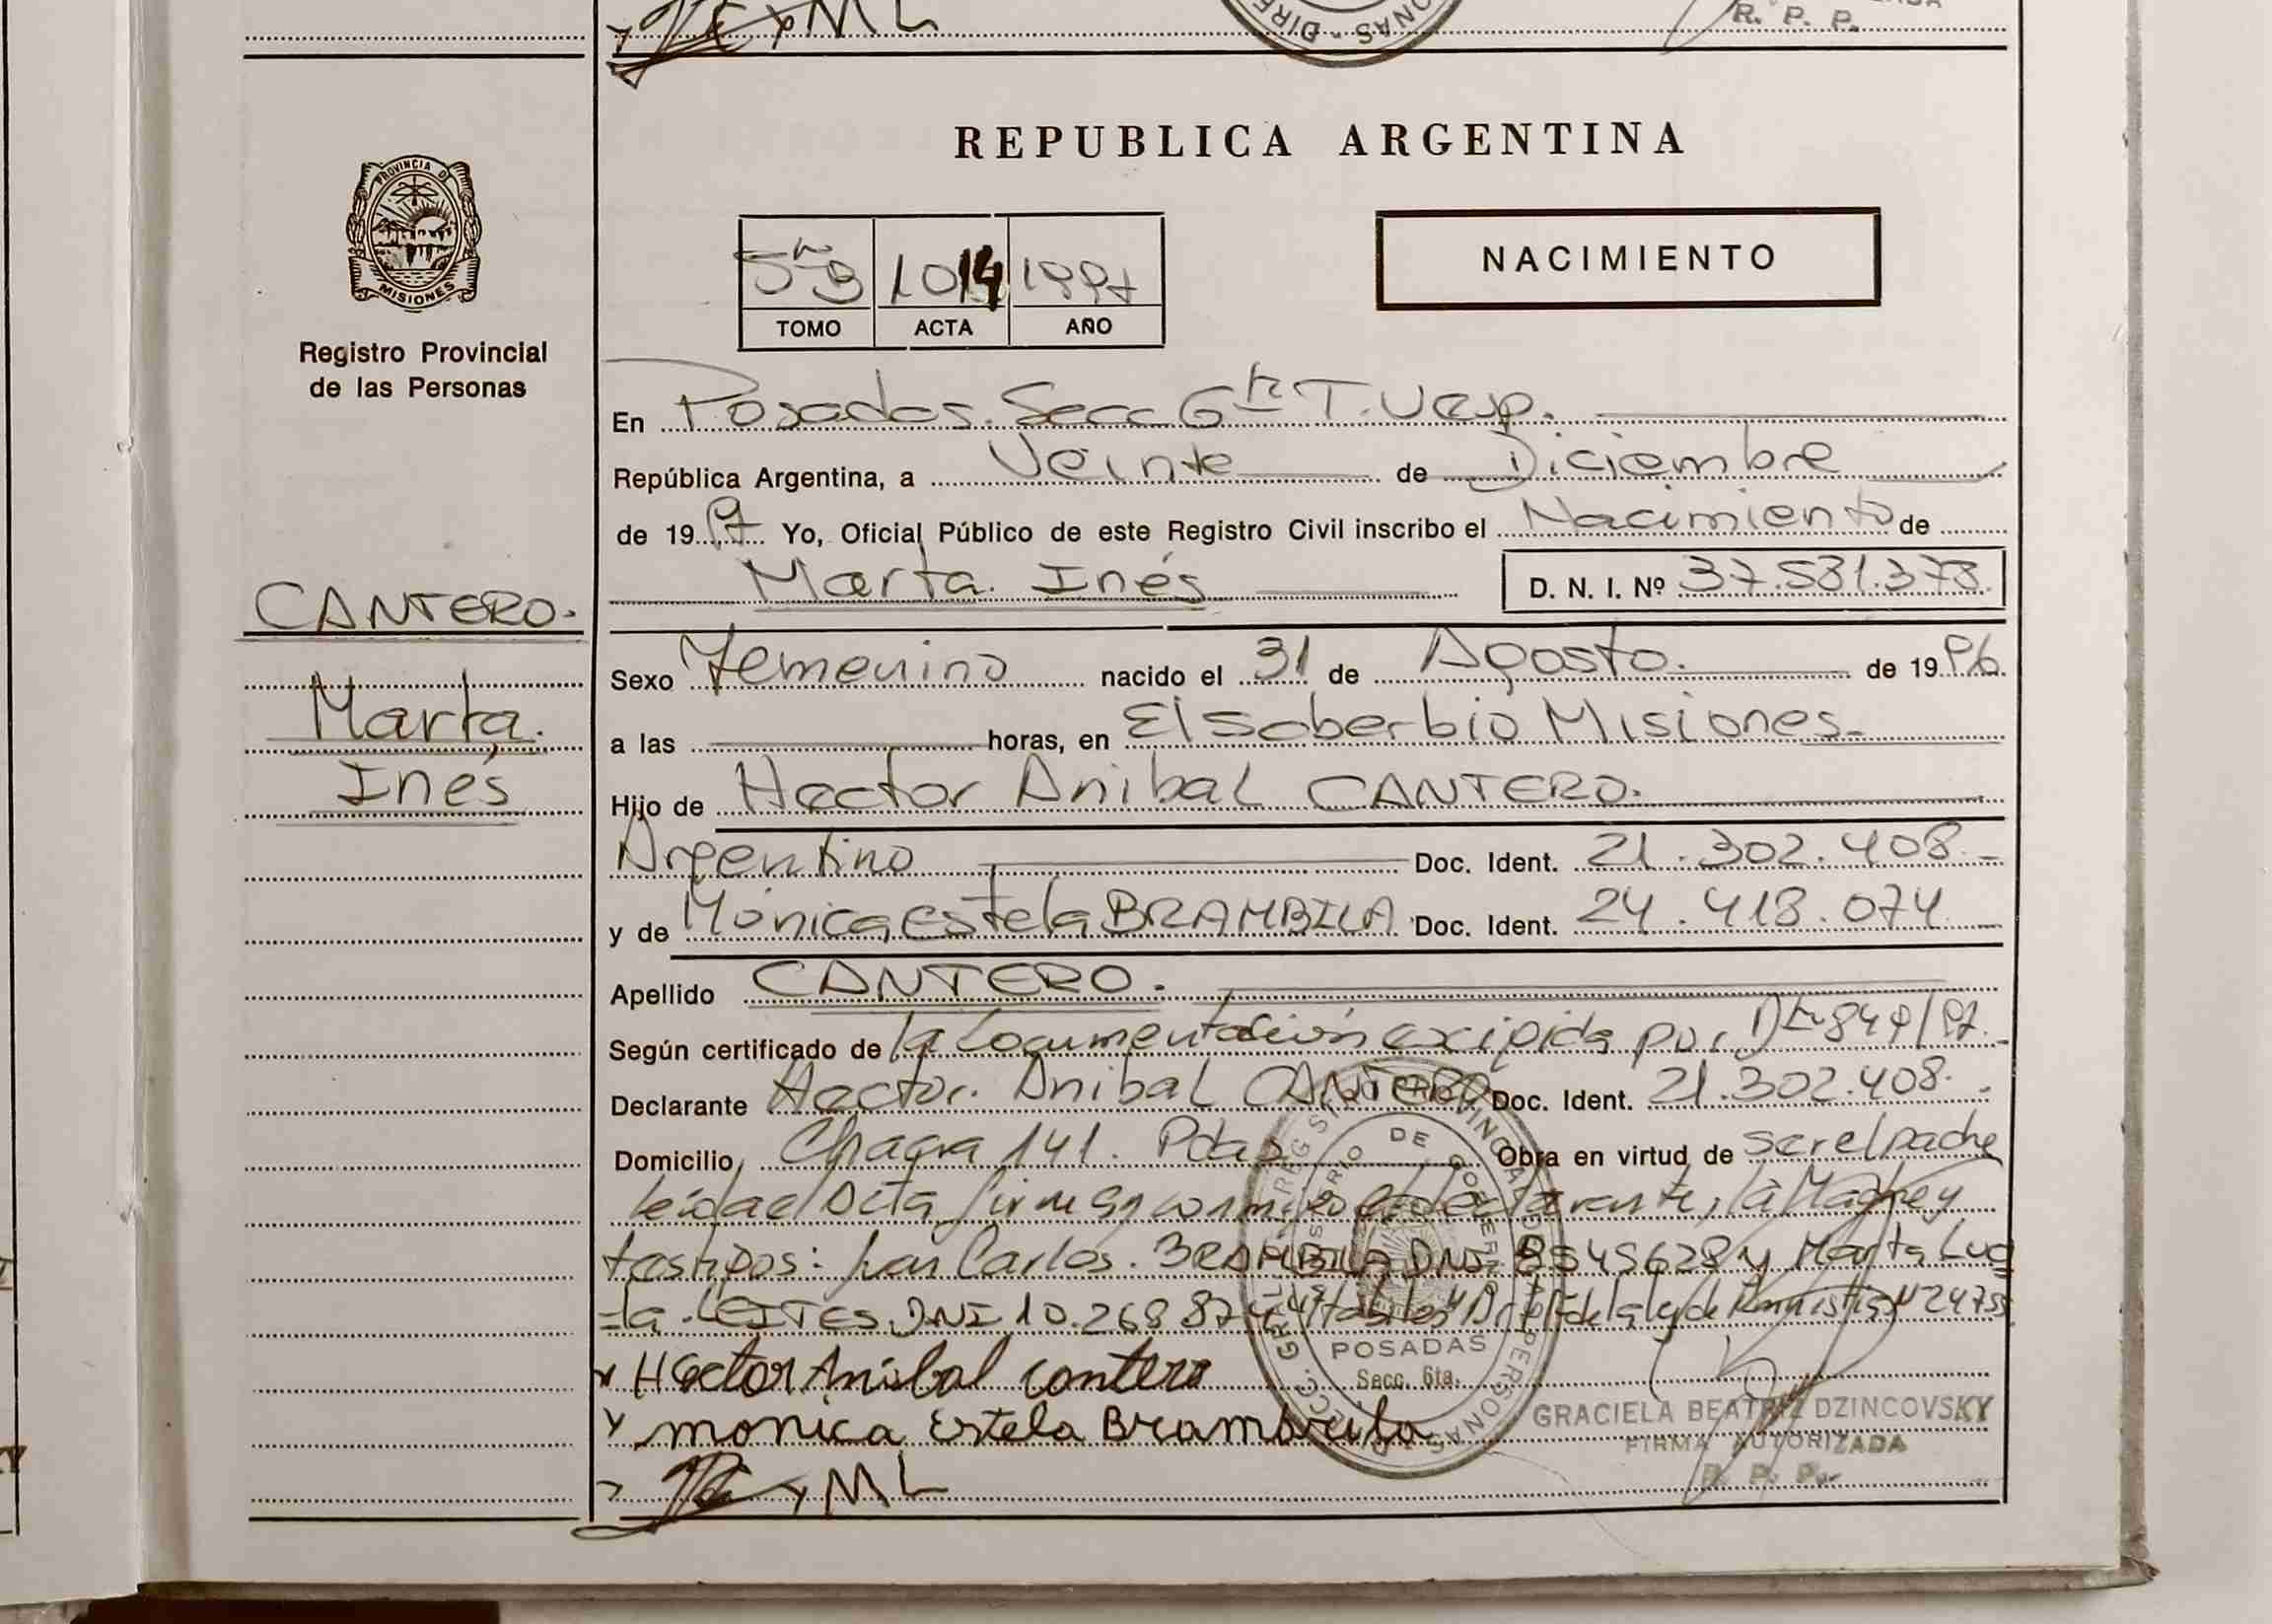 ML
R. P. P.
REPUBLICA ARGENTINA
PROVINCIA DE
MISIONES
Registro Provincial
de las Personas
1014 1997
TOMO ACTA AÑO
NACIMIENTO
En Posadas. Secc 6ta T. Vesp.
República Argentina, a Veinte de Diciembre
de 1997 Yo, Oficial Público de este Registro Civil inscribo el Nacimiento de
Marta Inés D. N. I. Nº 37.581.373
CANTERO.
Marta
Inés
Sexo Femenino nacido el 31 de Agosto de 1996
a las horas, en El Soberbio Misiones
Hijo de Hector Anibal CANTERO.
Argentino Doc. Ident. 21.302.408
y de Mónica Estela BRAMBILA Doc. Ident. 24.418.074
Apellido CANTERO.
Según certificado de la documentación exigida por
Declarante Hector Anibal CANTERO Doc. Ident. 21.302.408
Domicilio Chacra 141. Pdas Obra en virtud de ser el padre
leida el Acta firman conmigo el declarante, la Madre y
testigos: Juan Carlos BRAMBILA DNI 8545628 y Marta
LEITES DNI 10.268.874 de la ley de
POSADAS
Secc. 6ta.
Hector Anibal Cantero
monica Estela Brambila
GRACIELA BEATRIZ DZINCOVSKY
FIRMA AUTORIZADA
R. P. P.
ML